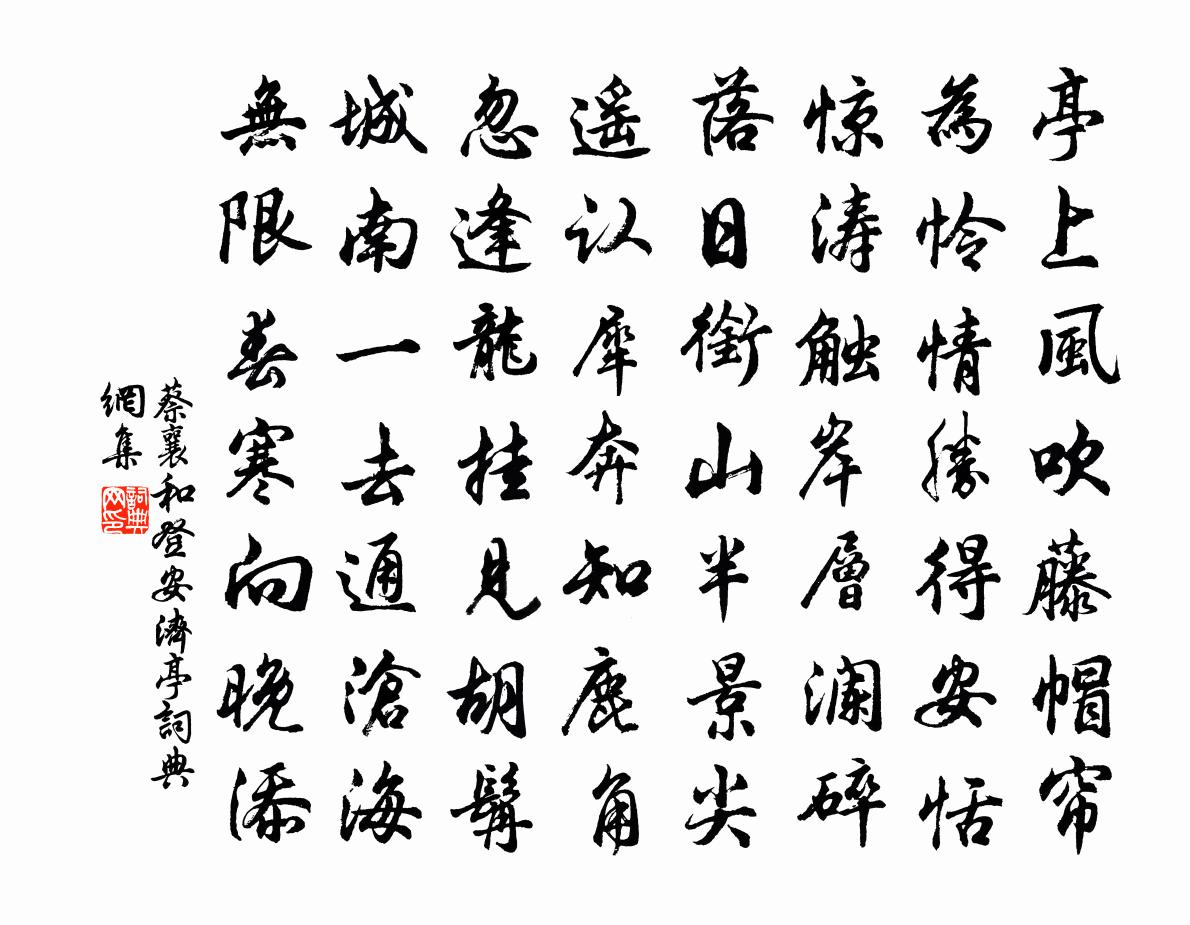 亭上風吹藤帽帘
為怜情勝得安恬
惊涛触岸層澜碎
落日銜山半景尖
遥认犀奔知鹿角
忽逢龍挂見胡髯
城南一去通滄海
無限春寒向晚添
蔡襄和登安濟亭詞典
網集
詞典
网印